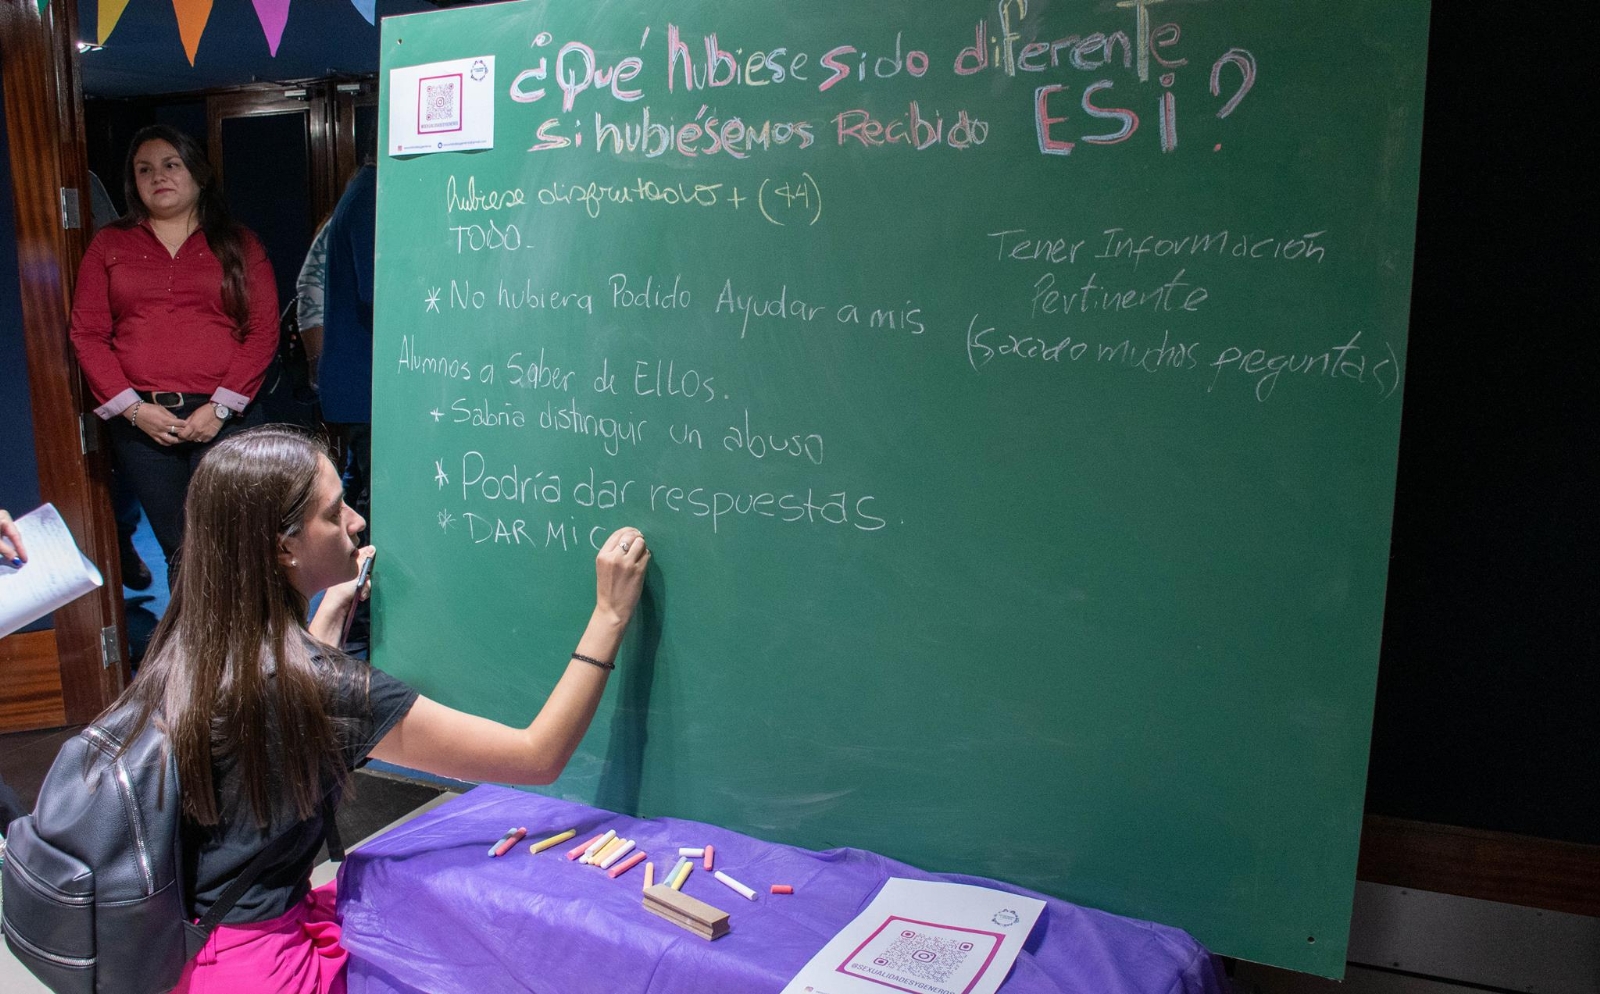 ¿Qué hubiese sido diferente
si hubiésemos Recibido ESi?
hubiese disfrutado + (44)
TODO-
* No hubiera Podido Ayudar a mis
Alumnos a Saber de EllOs.
+ Sabría distinguir un abuso
* Podría dar respuestas.
* DAR Mi C
Tener Información
Pertinente
(Sacado muchas preguntas)
@SEXUALIDADESYGENEROS
@SEXUALIDADESYGENEROS